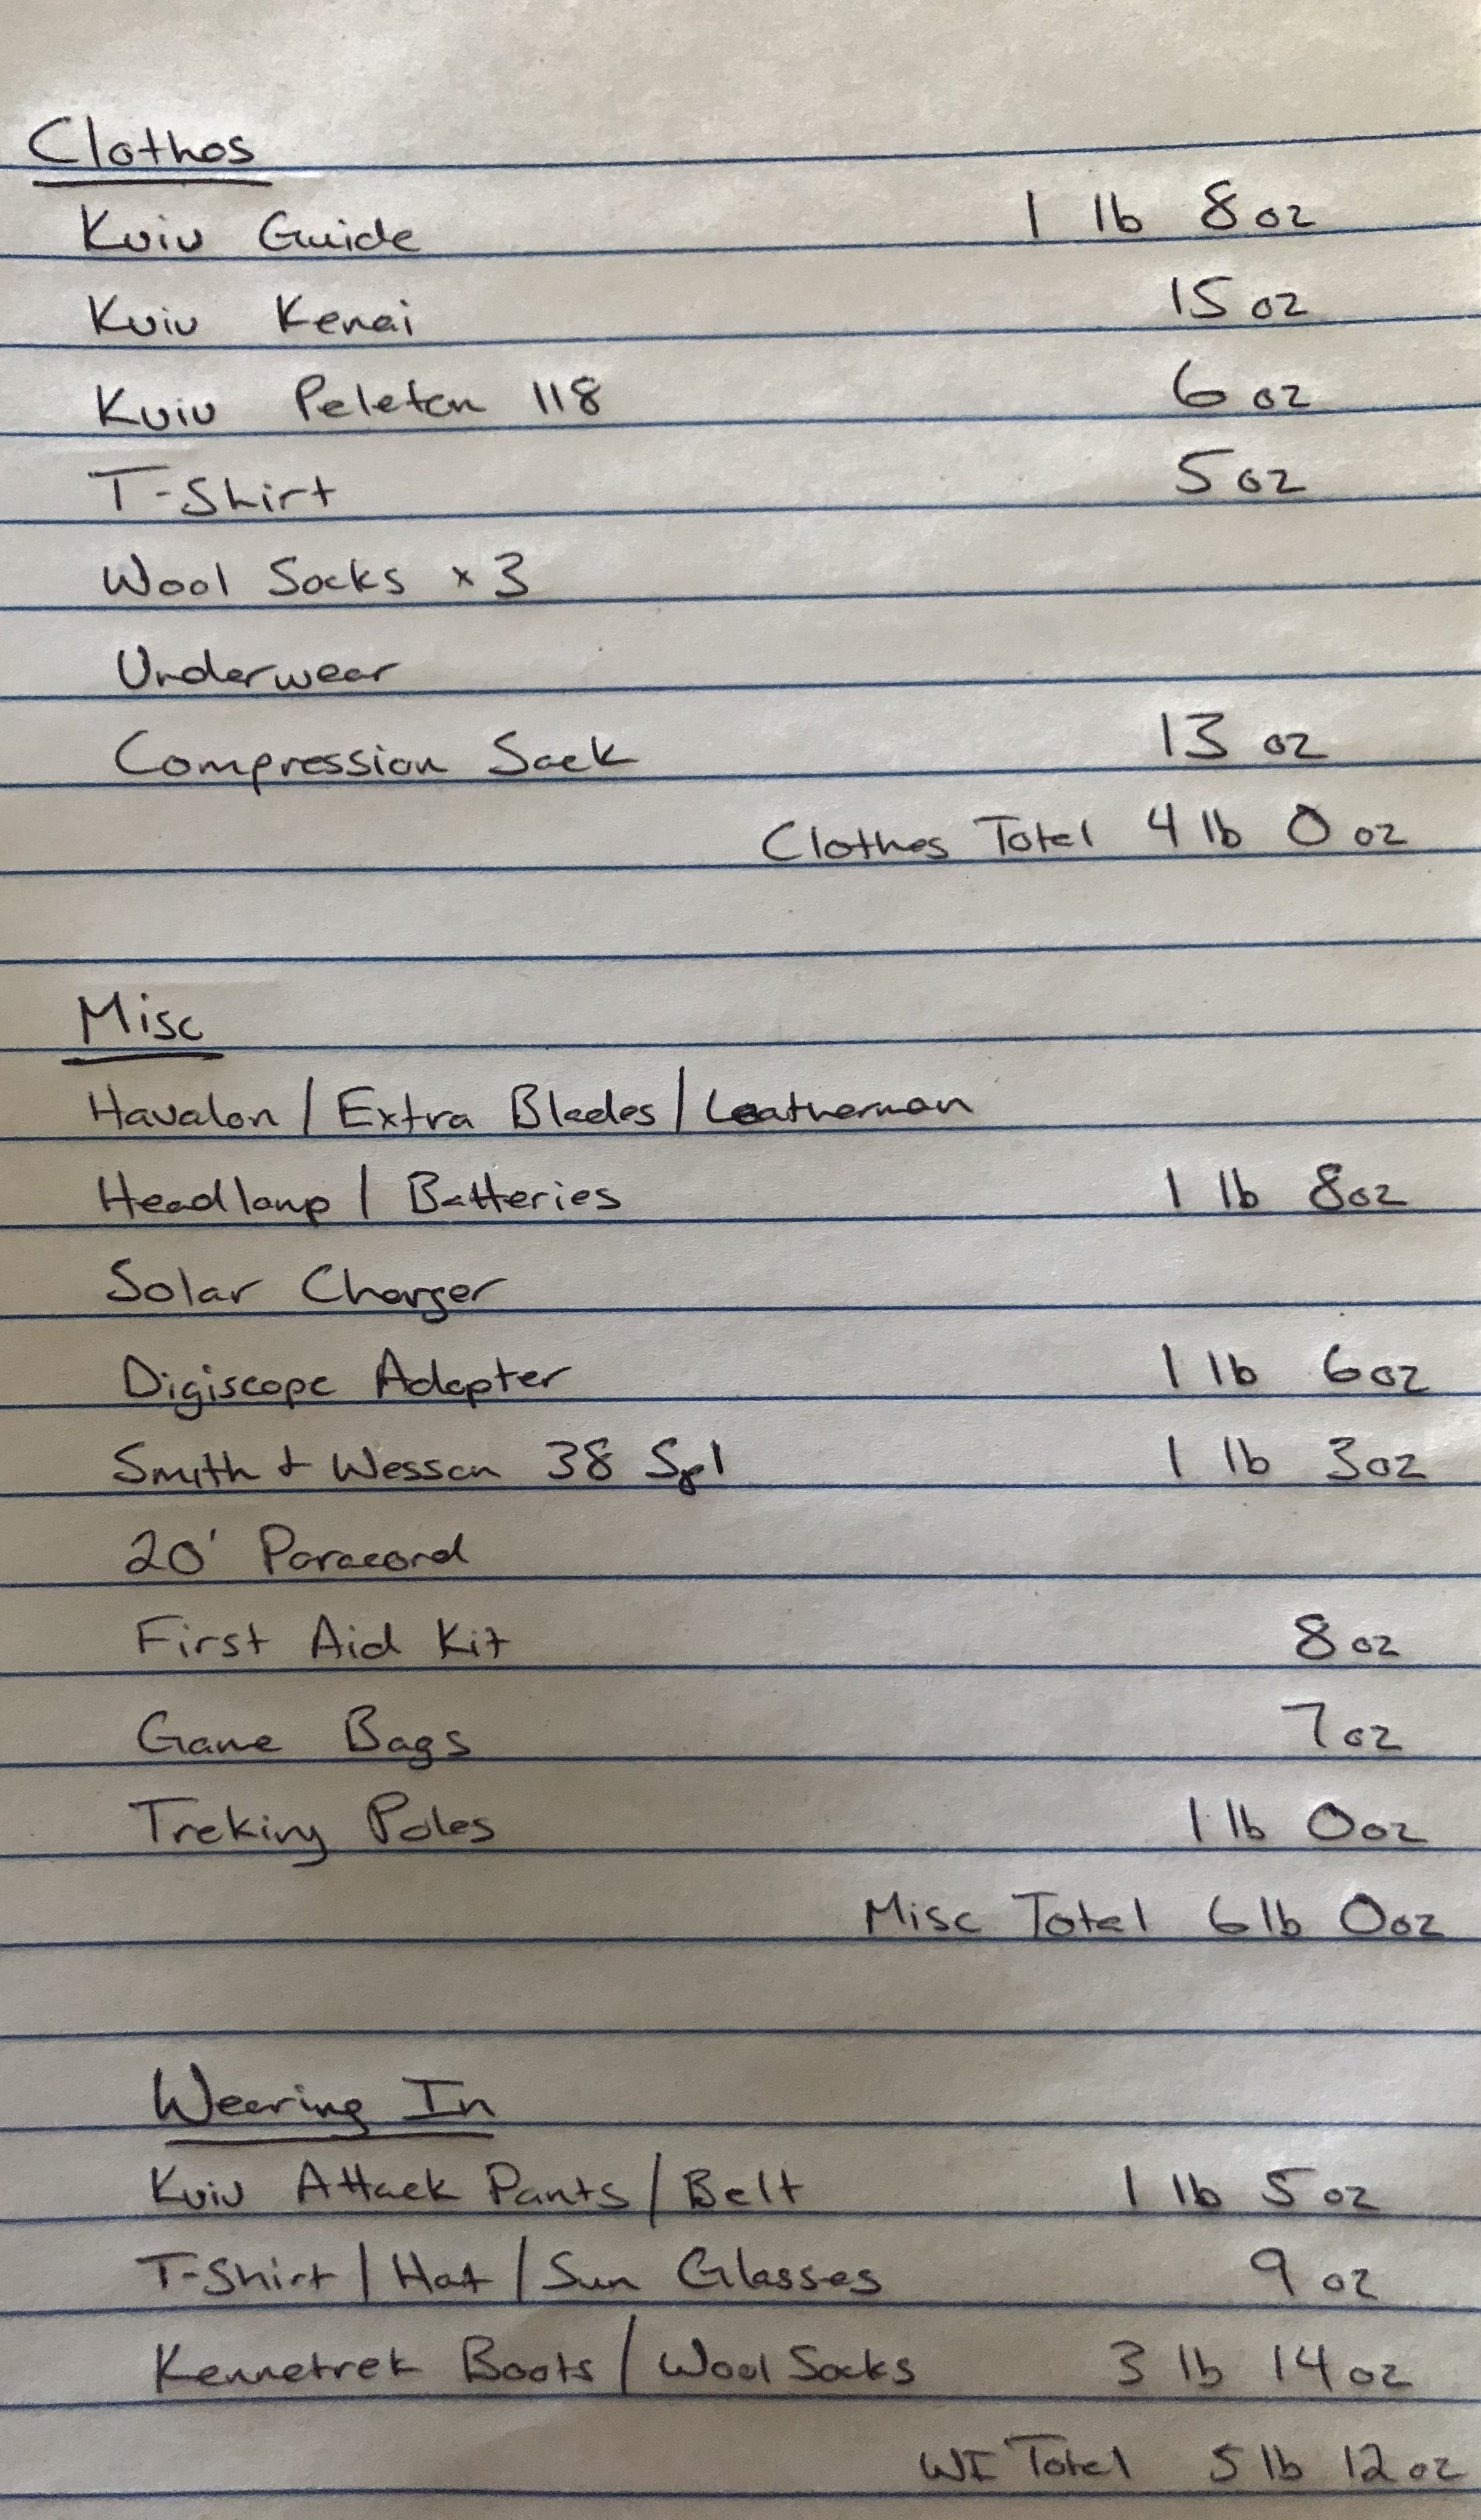 Clothes
Kuiu Guide 1 lb 8 oz
Kuiu Kenai 15 oz
Kuiu Peleton 118 6 oz
T-Shirt 5 oz
Wool Socks x 3
Underwear
Compression Sack 13 oz
Clothes Total 4 lb 0 oz
Misc
Havalon / Extra Blades / Leatherman
Headlamp / Batteries 1 lb 8 oz
Solar Charger
Digiscope Adapter 1 lb 6 oz
Smith + Wesson 38 Spl 1 lb 3 oz
20' Paracord
First Aid Kit 8 oz
Game Bags 7 oz
Treking Poles 1 lb 0 oz
Misc Total 6 lb 0 oz
Wearing In
Kuiu Attack Pants / Belt 1 lb 5 oz
T-Shirt / Hat / Sun Glasses 9 oz
Kennetrek Boots / Wool Socks 3 lb 14 oz
WI Total 5 lb 12 oz